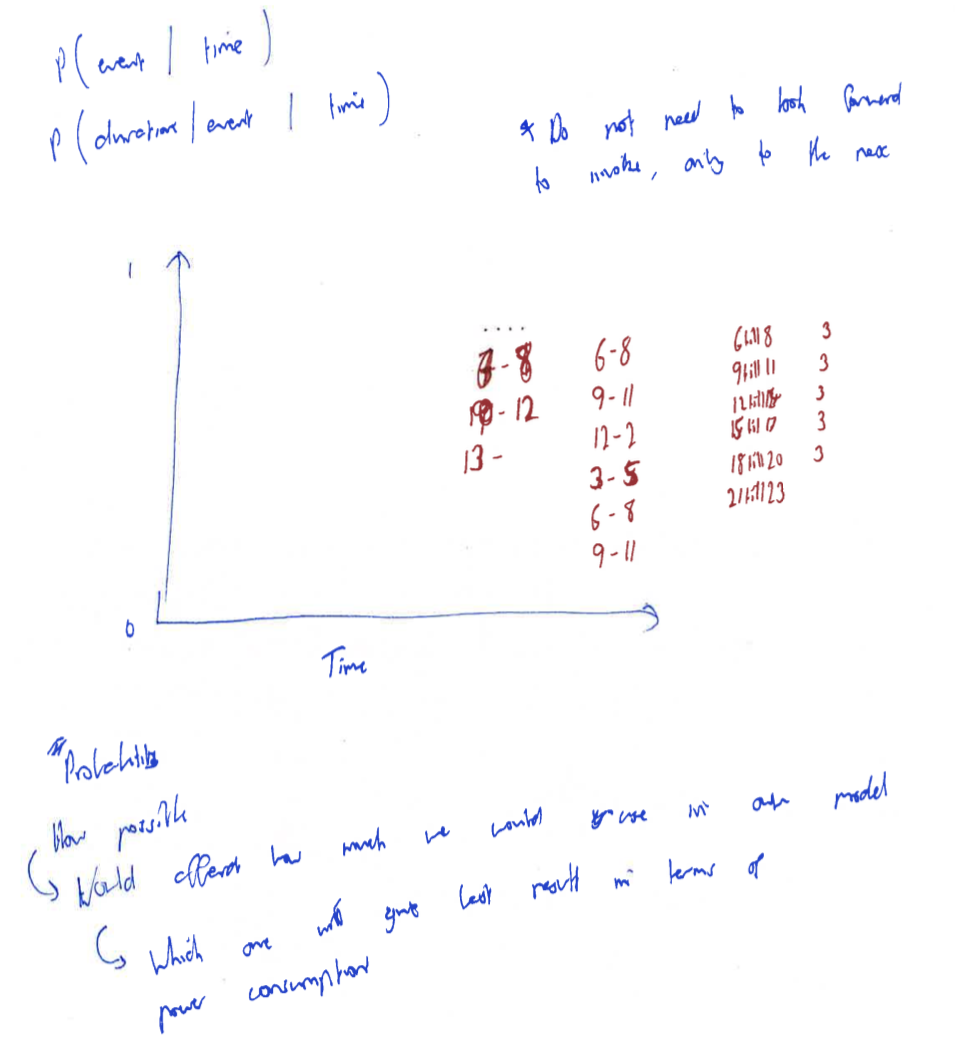 P(event | time)
P(duration | event | time)
* Do not need to look forward
to invoke, only to the next
1
....
- 8
- 12
13 -
6-8
9-11
12-2
3-5
6-8
9-11
6till8 3
9till11 3
12till 3
15till17 3
18till20 3
21till23
0
Time
Probabilities
How possible
Would affect how much we would use in our model
Which one will give best result in terms of
power consumption